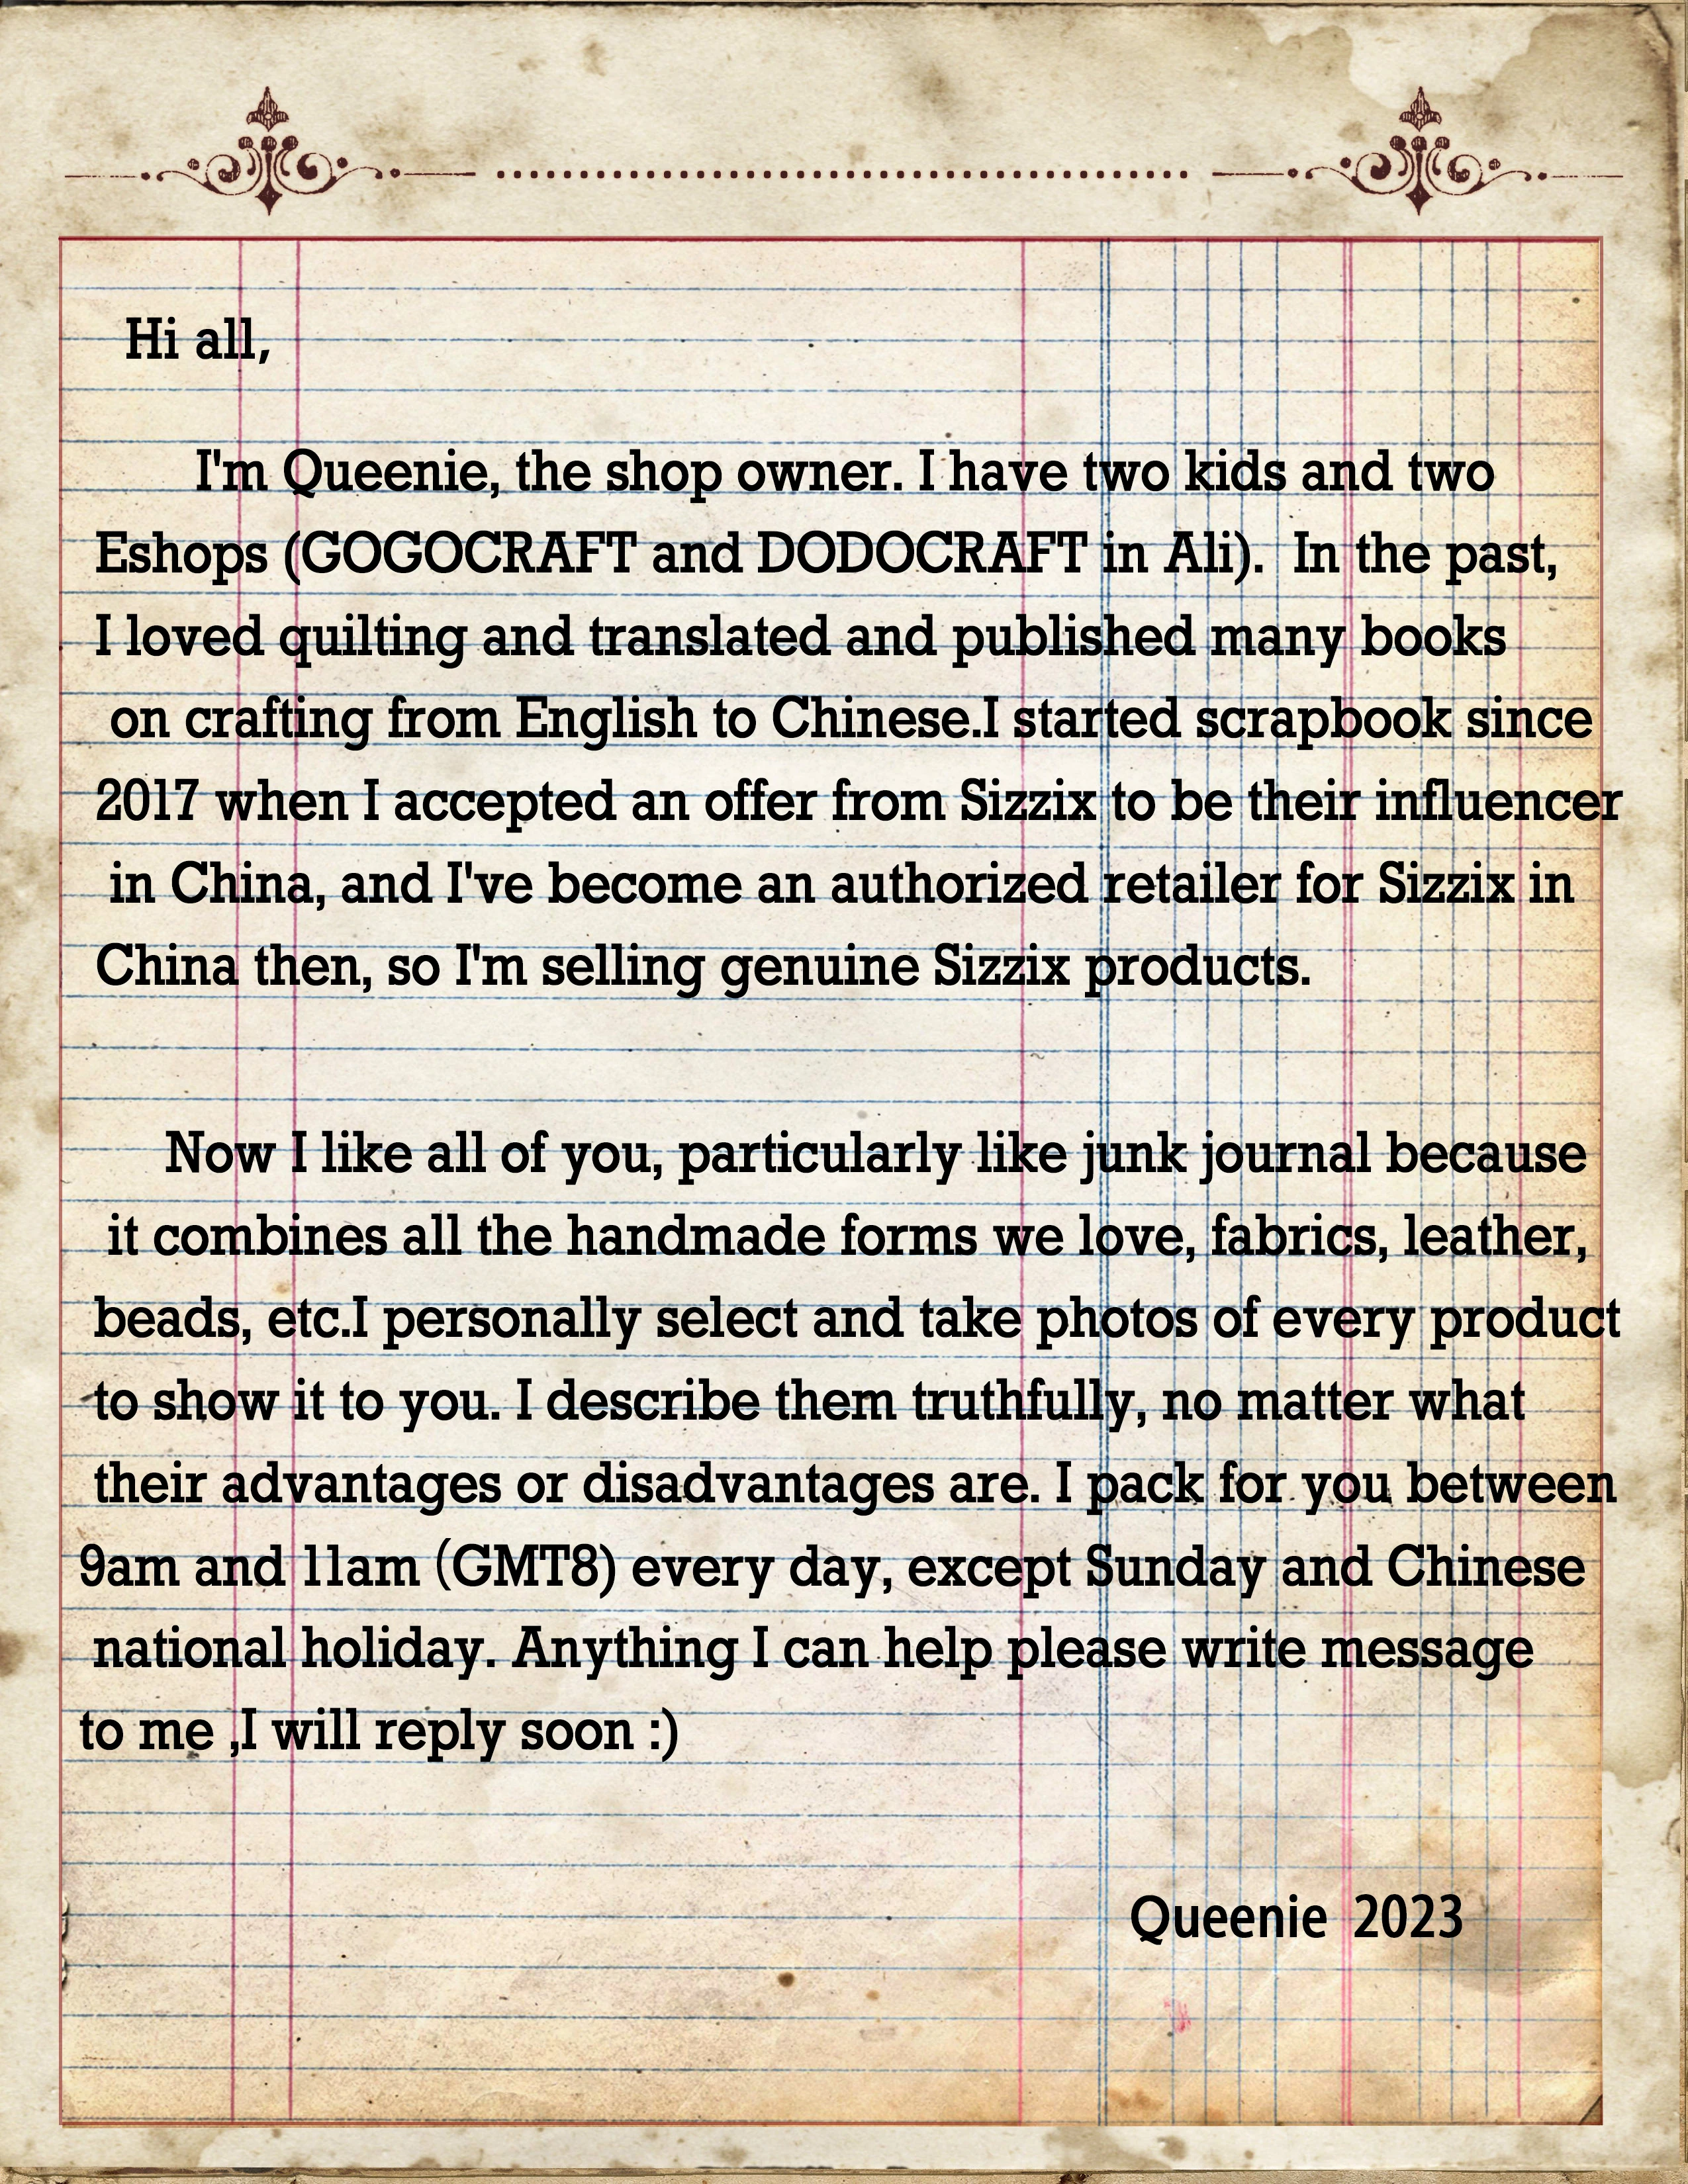 Hi all,
I'm Queenie, the shop owner. I have two kids and two
Eshops (GOGOCRAFT and DODOCRAFT in Ali).  In the past,
I loved quilting and translated and published many books
on crafting from English to Chinese.I started scrapbook since
2017 when I accepted an offer from Sizzix to be their influencer
in China, and I've become an authorized retailer for Sizzix in
China then, so I'm selling genuine Sizzix products.
Now I like all of you, particularly like junk journal because
it combines all the handmade forms we love, fabrics, leather,
beads, etc.I personally select and take photos of every product
to show it to you. I describe them truthfully, no matter what
their advantages or disadvantages are. I pack for you between
9am and 11am (GMT8) every day, except Sunday and Chinese
national holiday. Anything I can help please write message
to me ,I will reply soon :)
Queenie  2023